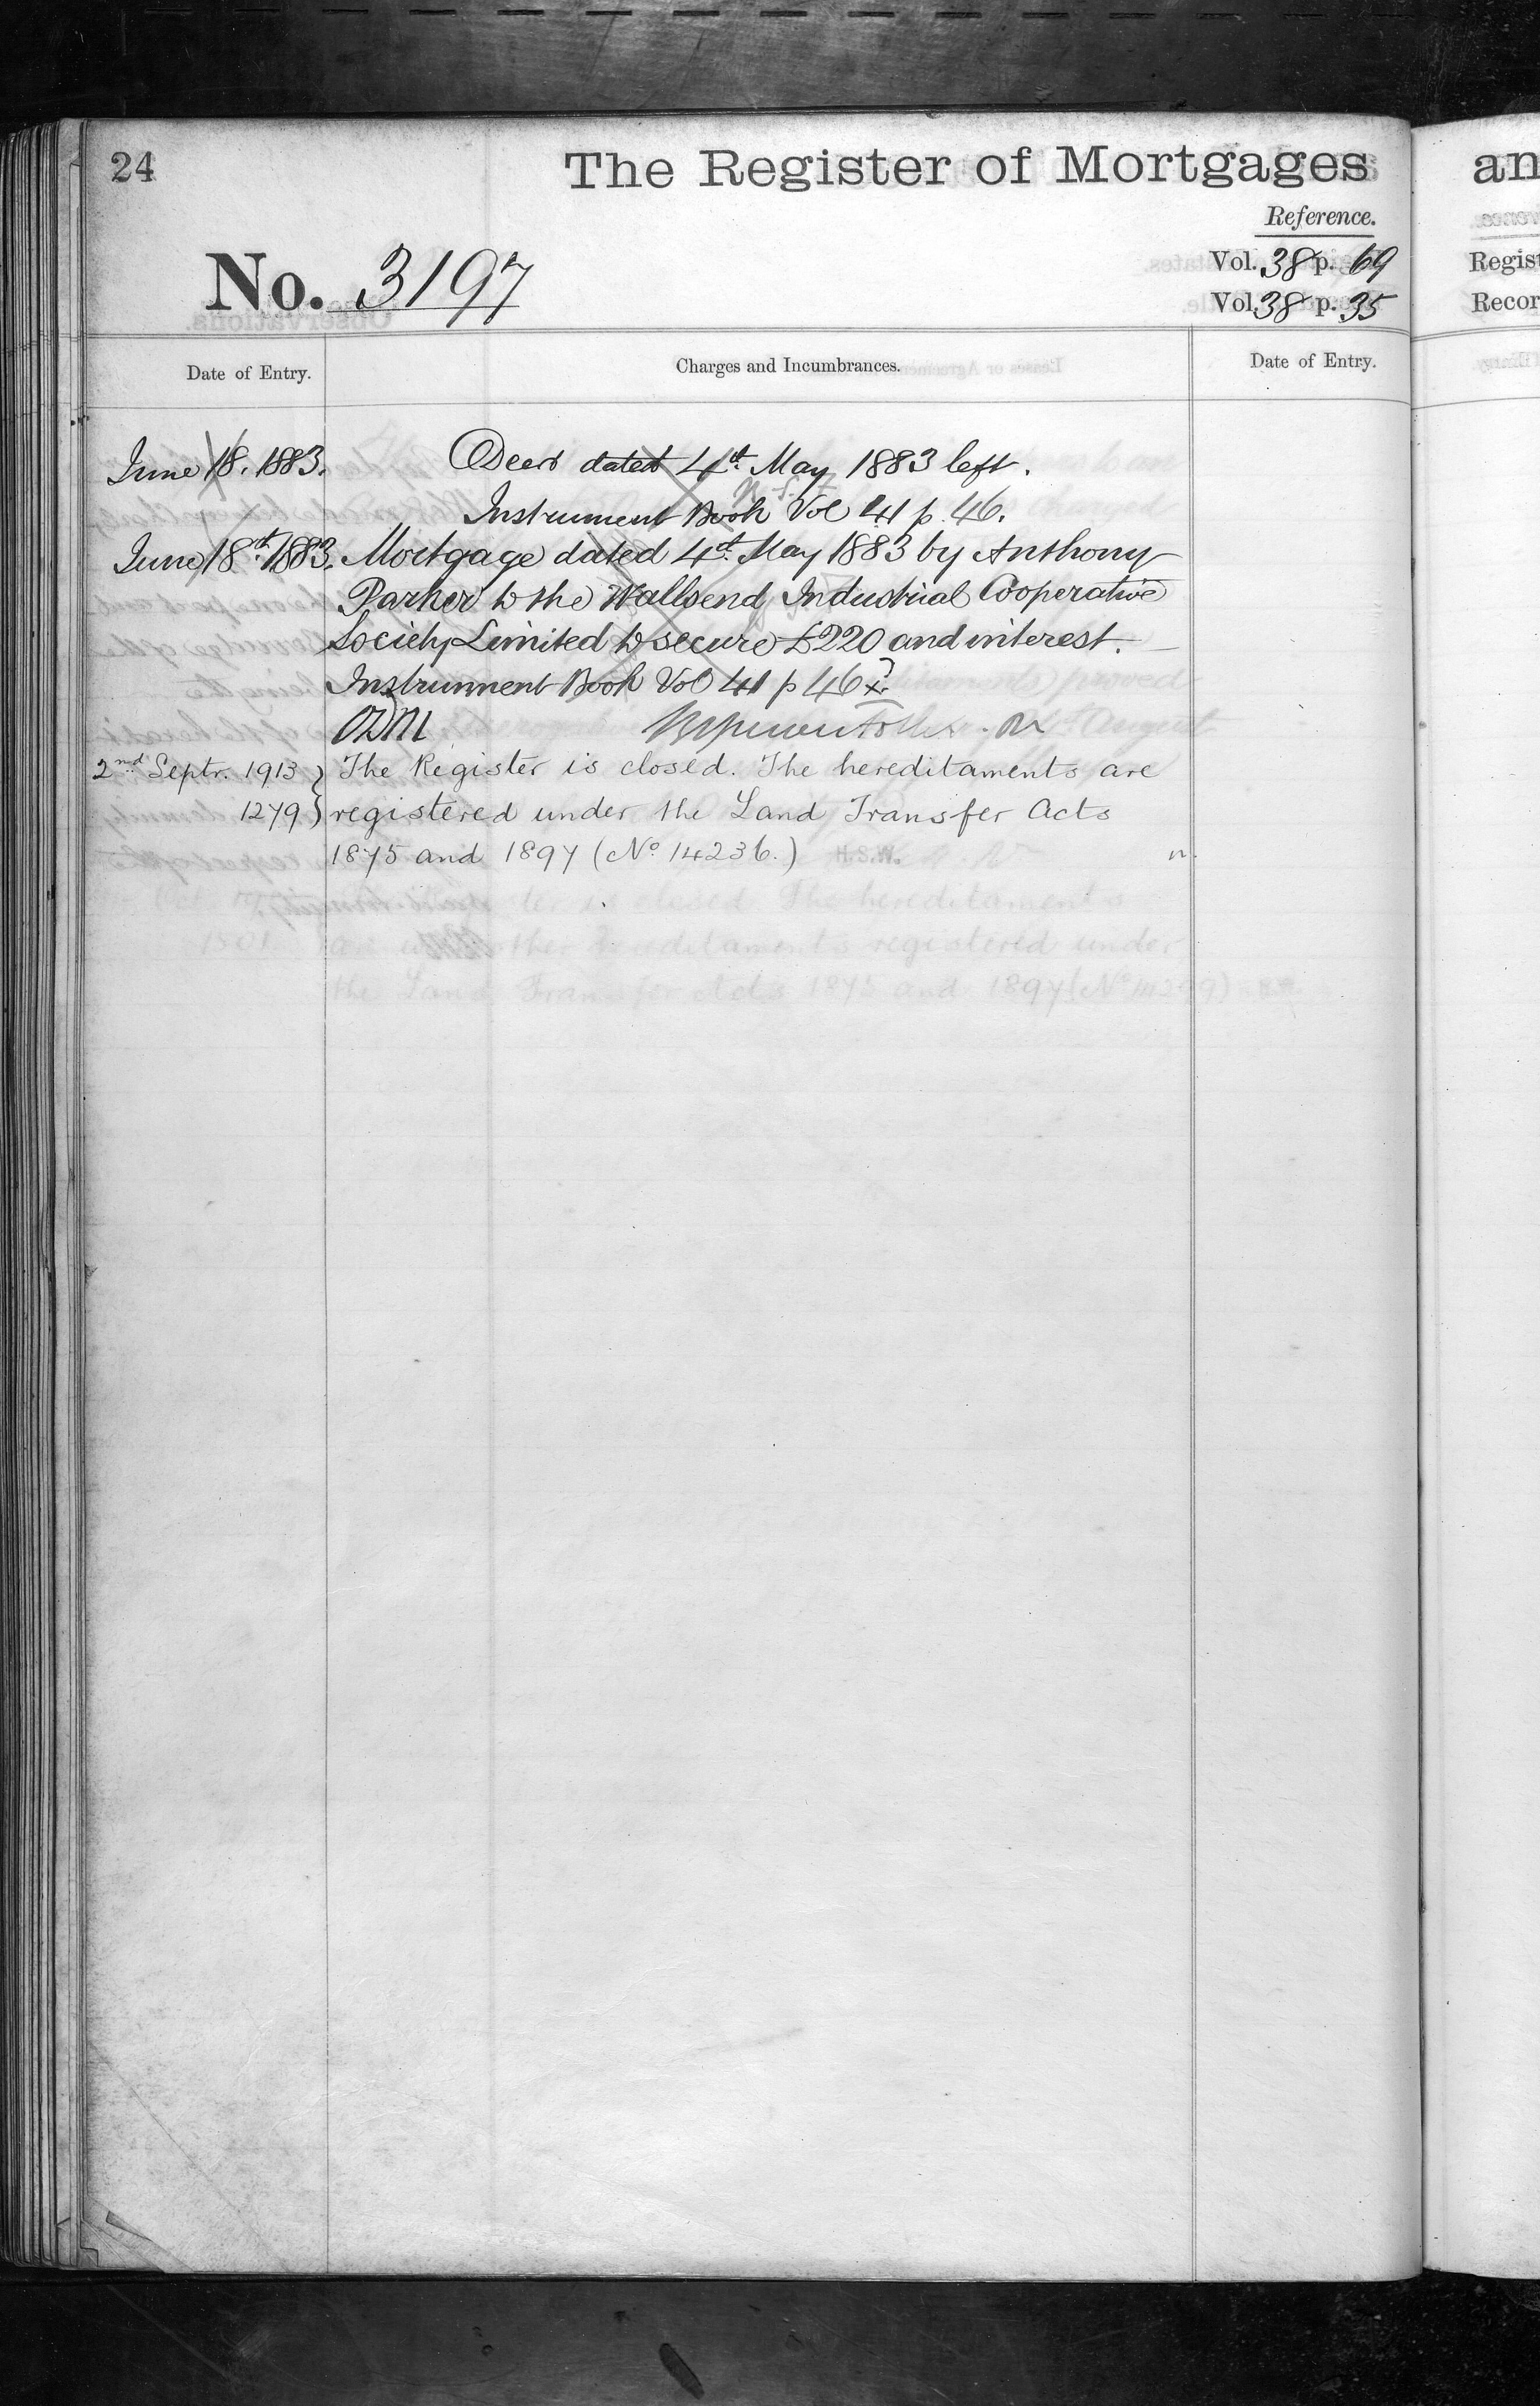 24
The Register of Mortgages
an
Reference.
No. 3197
Vol. 38 p. 69
Vol. 38 p. 35
Regist
Recor
Date of Entry.
Charges and Incumbrances.
Date of Entry.
June 18. 1883.
Deed dated 4th May 1883 left.
Instrument Book Vol 41 p. 46.
June 18th 1883.
Mortgage dated 4th May 1883 by Anthony
Parker to the Wallsend Industrial Cooperative
Society Limited to secure £220 and interest.
Instrument Book Vol 41 p 46
2nd Septr. 1913
The Register is closed. The hereditaments are
1279
registered under the Land Transfer Acts
1875 and 1897 (No 14236.) H.S.W.